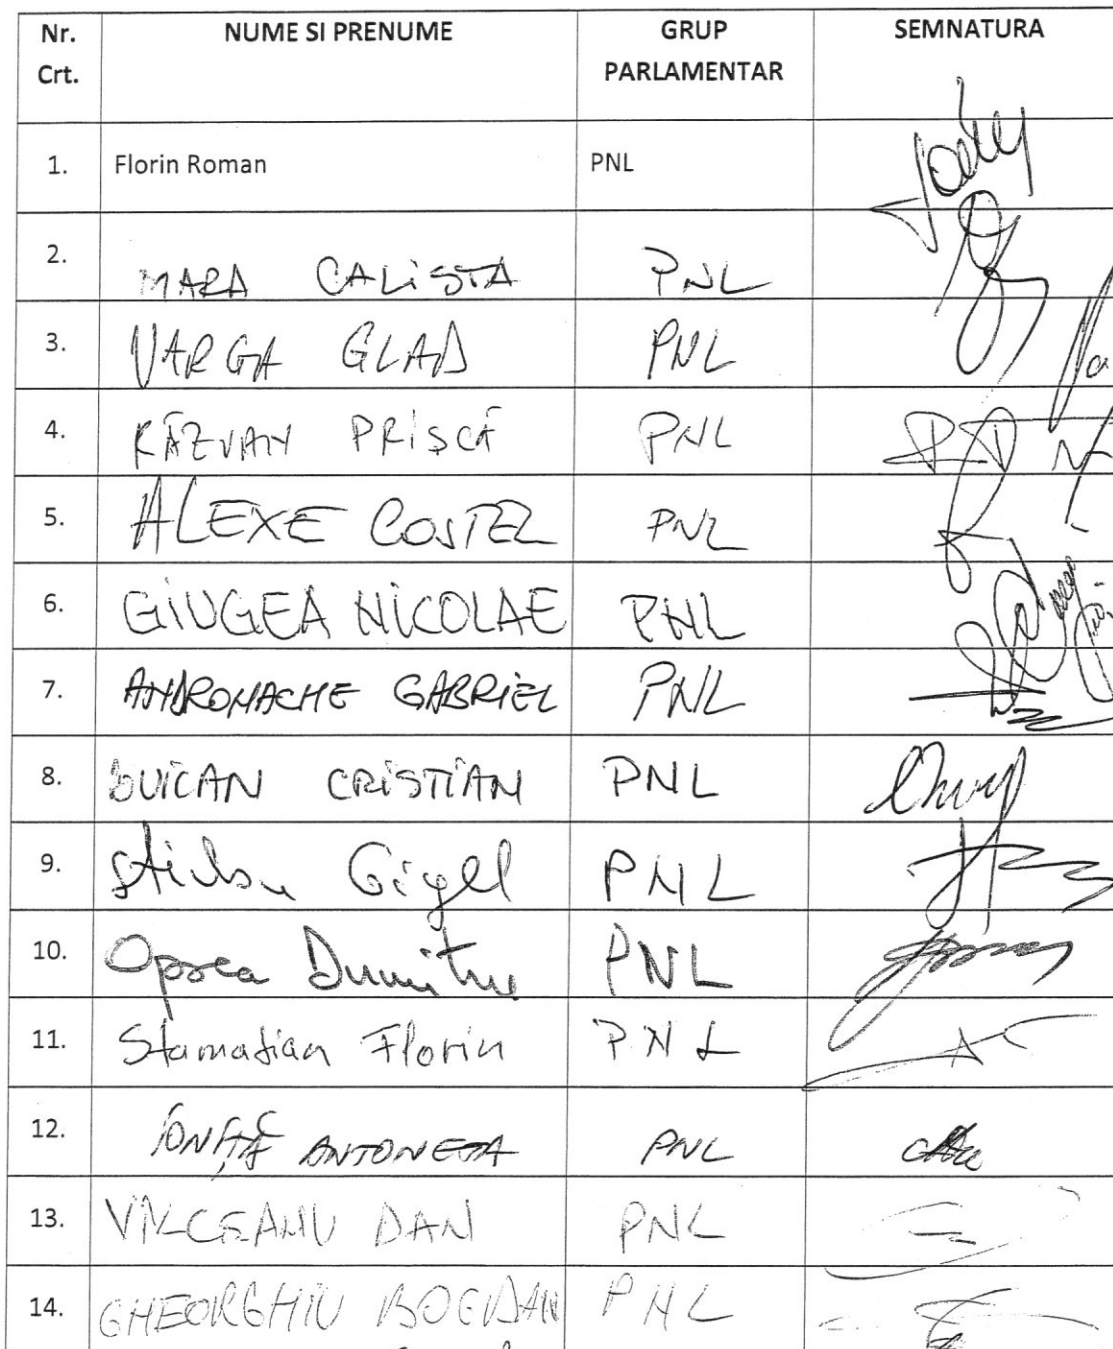 Nr. Crt. NUME SI PRENUME GRUP PARLAMENTAR SEMNATURA
1. Florin Roman PNL
2. MARA CALISTA PNL
3. VARGA GLAD PNL
4. RĂZVAN PRIȘCĂ PNL
5. ALEXE COSTEL PNL
6. GIUGEA NICOLAE PNL
7. ANDRONACHE GABRIEL PNL
8. BUICAN CRISTIAN PNL
9. Știrbu Gigel PNL
10. Oprea Dumitru PNL
11. Stamatian Florin PNL
12. IONIȚĂ ANTONETA PNL
13. VILCEANU DAN PNL
14. GHEORGHIU BOGDAN PNL